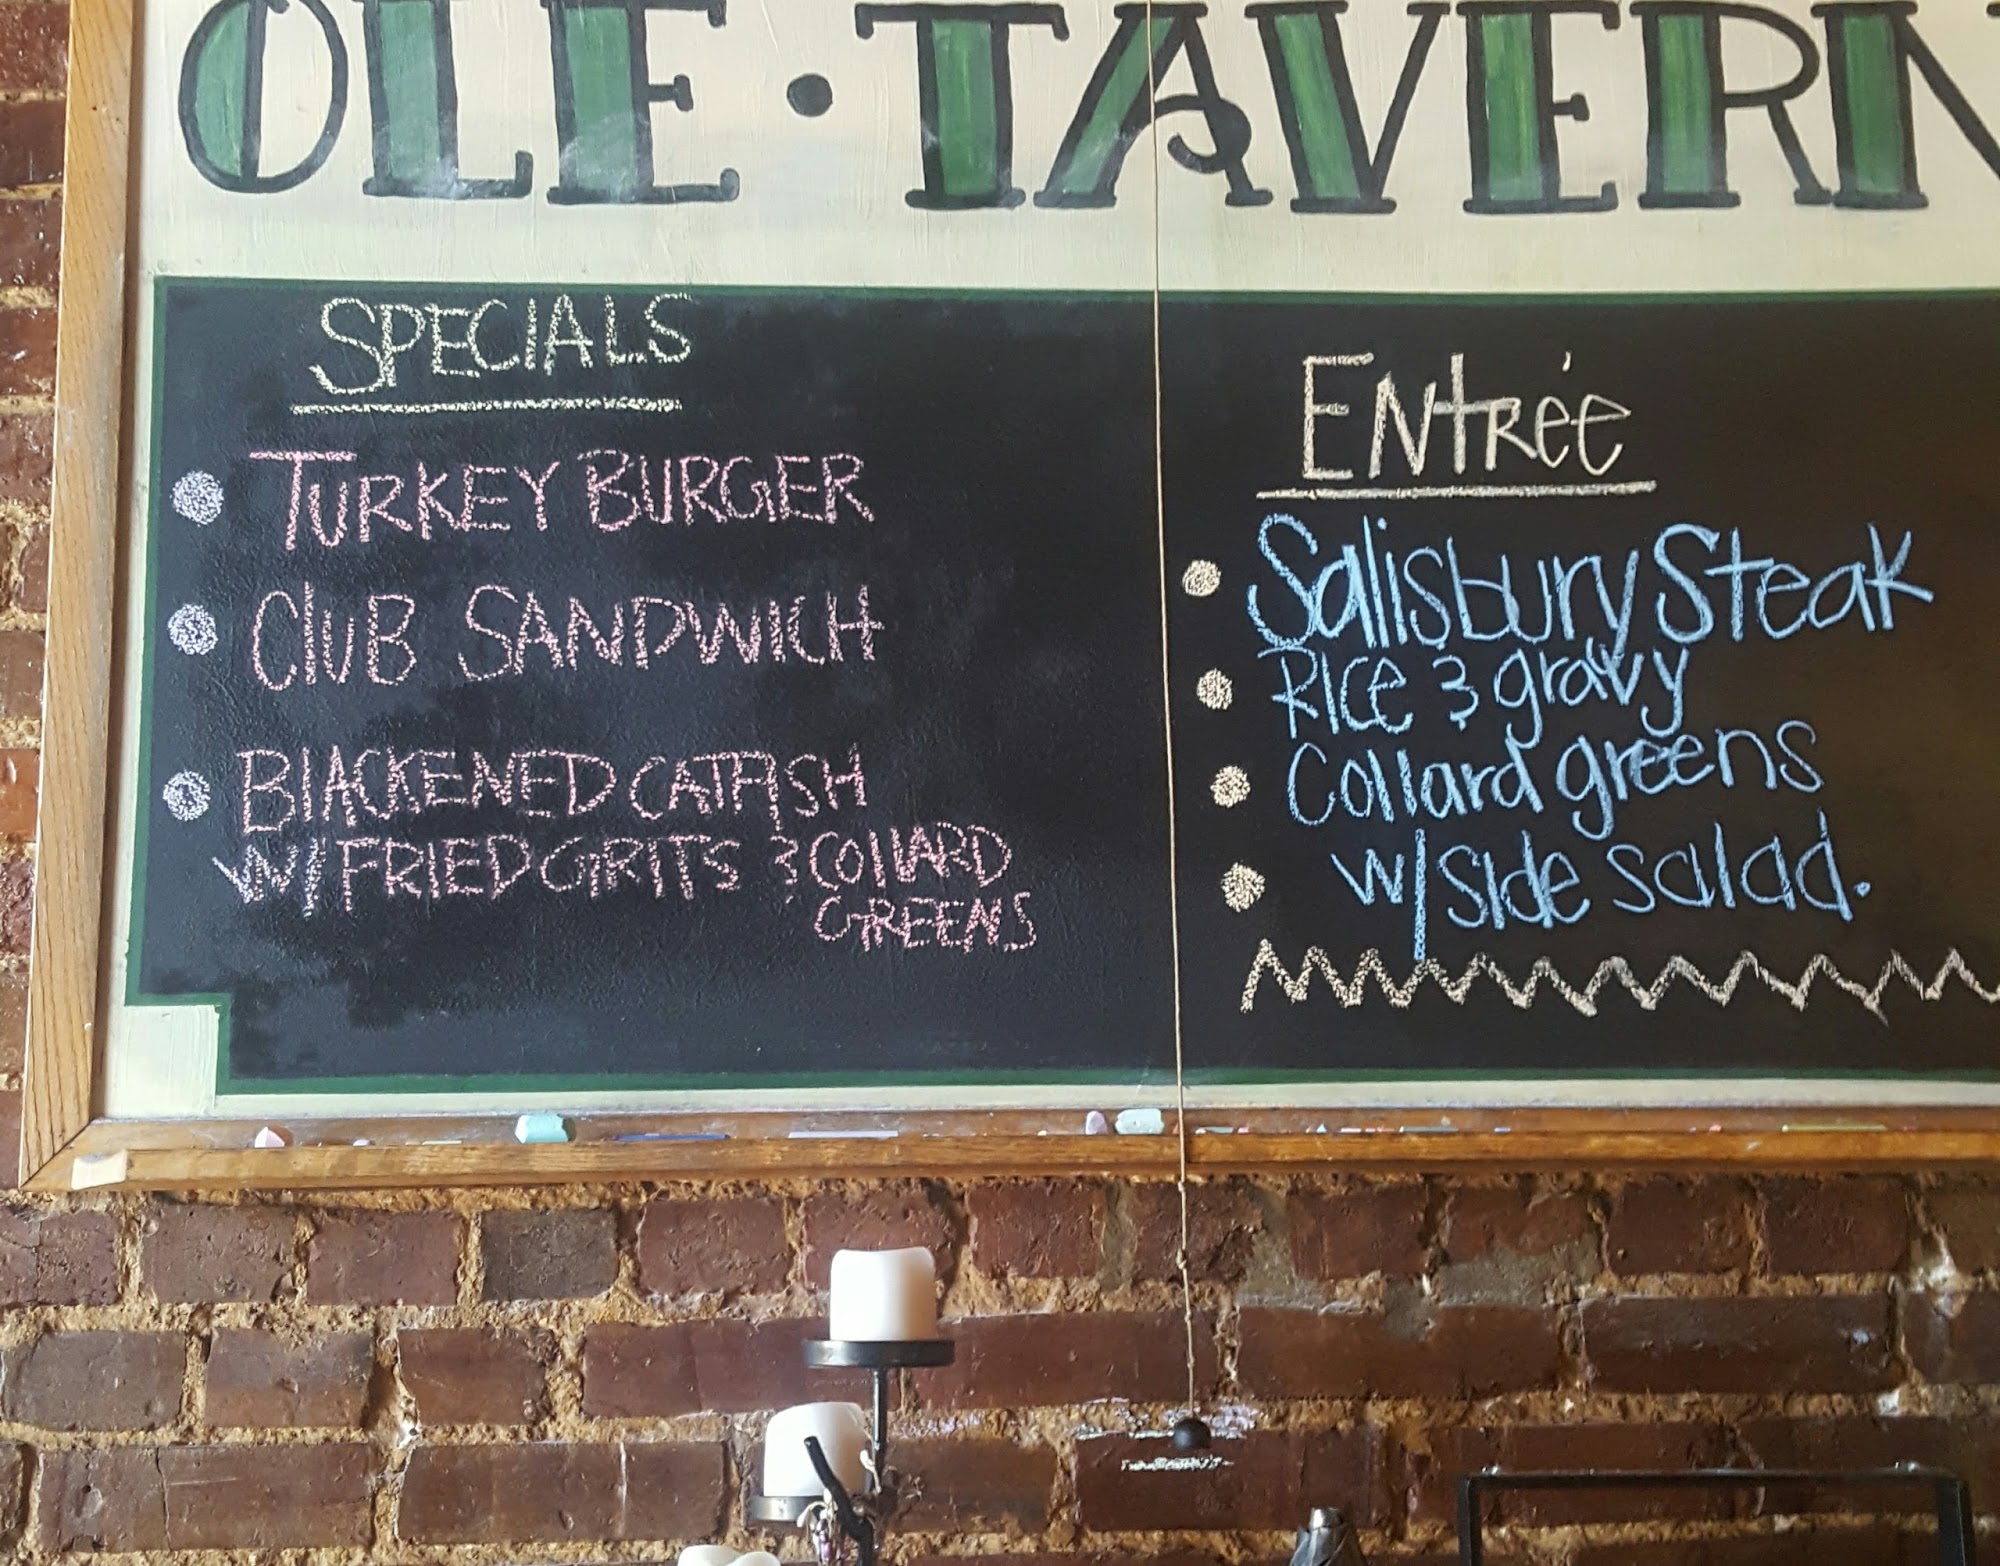 OLE · TAVERN
SPECIALS
TURKEY BURGER
CluB SANDWICH
BlACKENED CATFISH
W/ FRIED GRITS & COllARD
GREENS
ENtRéE
Salisbury Steak
Rice & gravy
Collard greens
w/ Side salad.